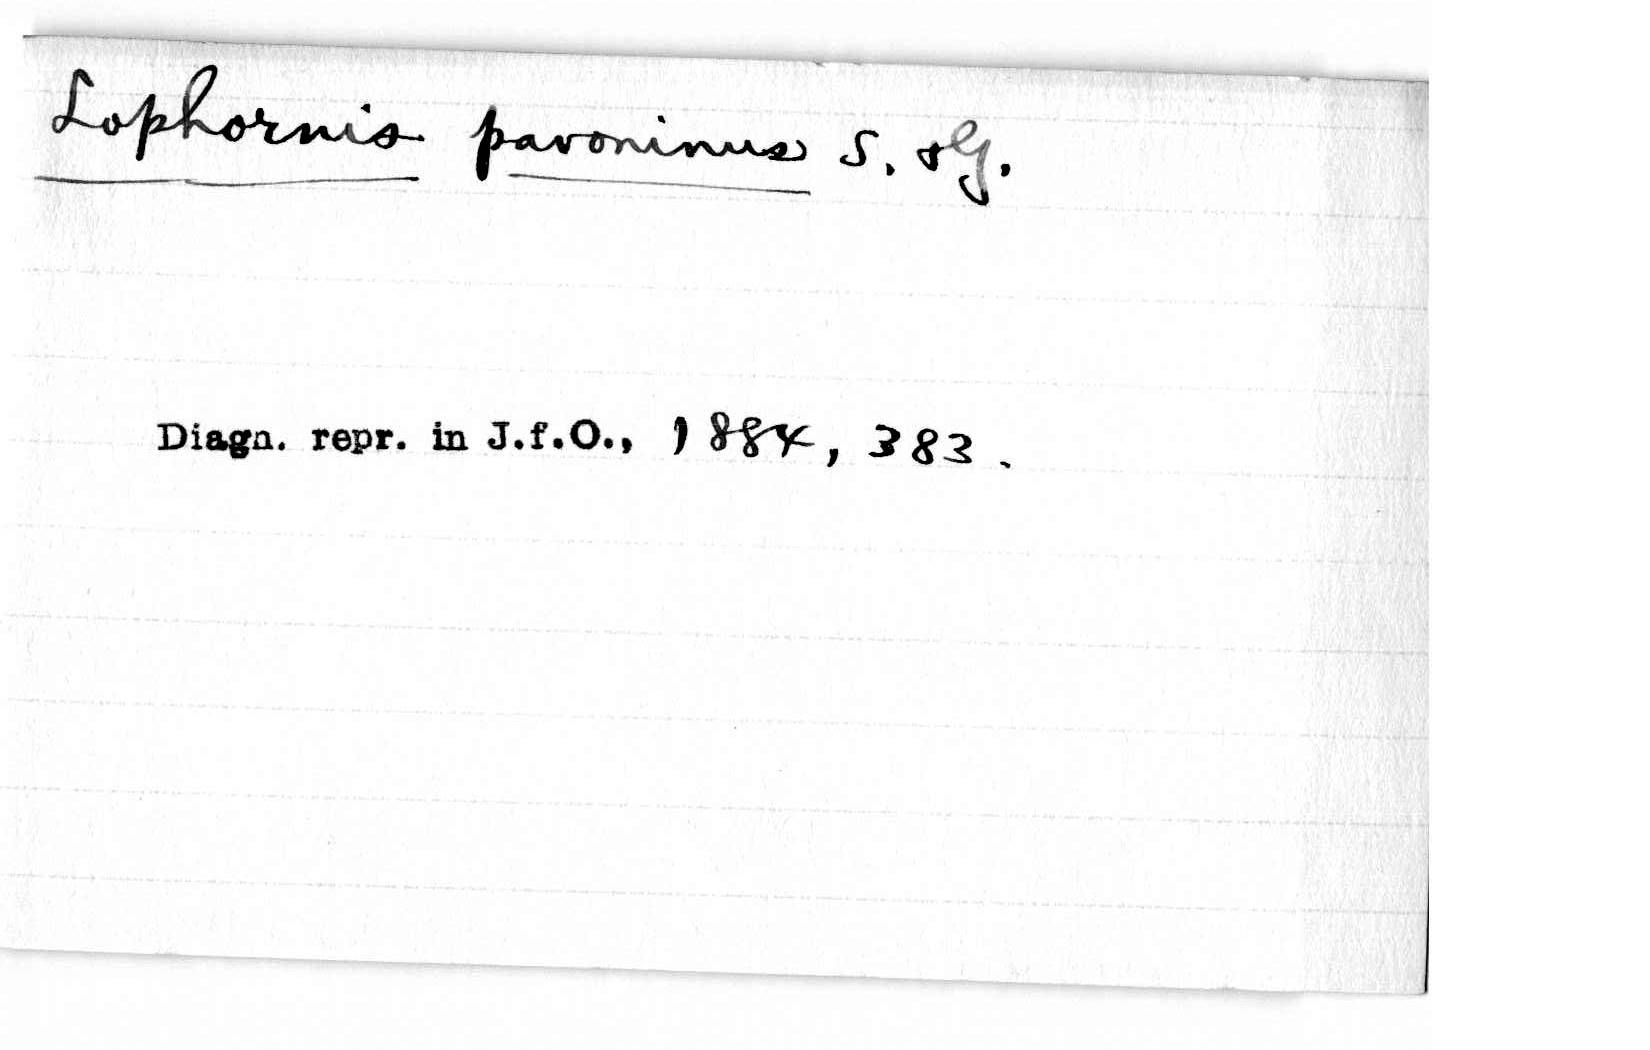 Lophornis pavoninus S. & G.
Diagn. repr. in J.f.O., 1884, 383.